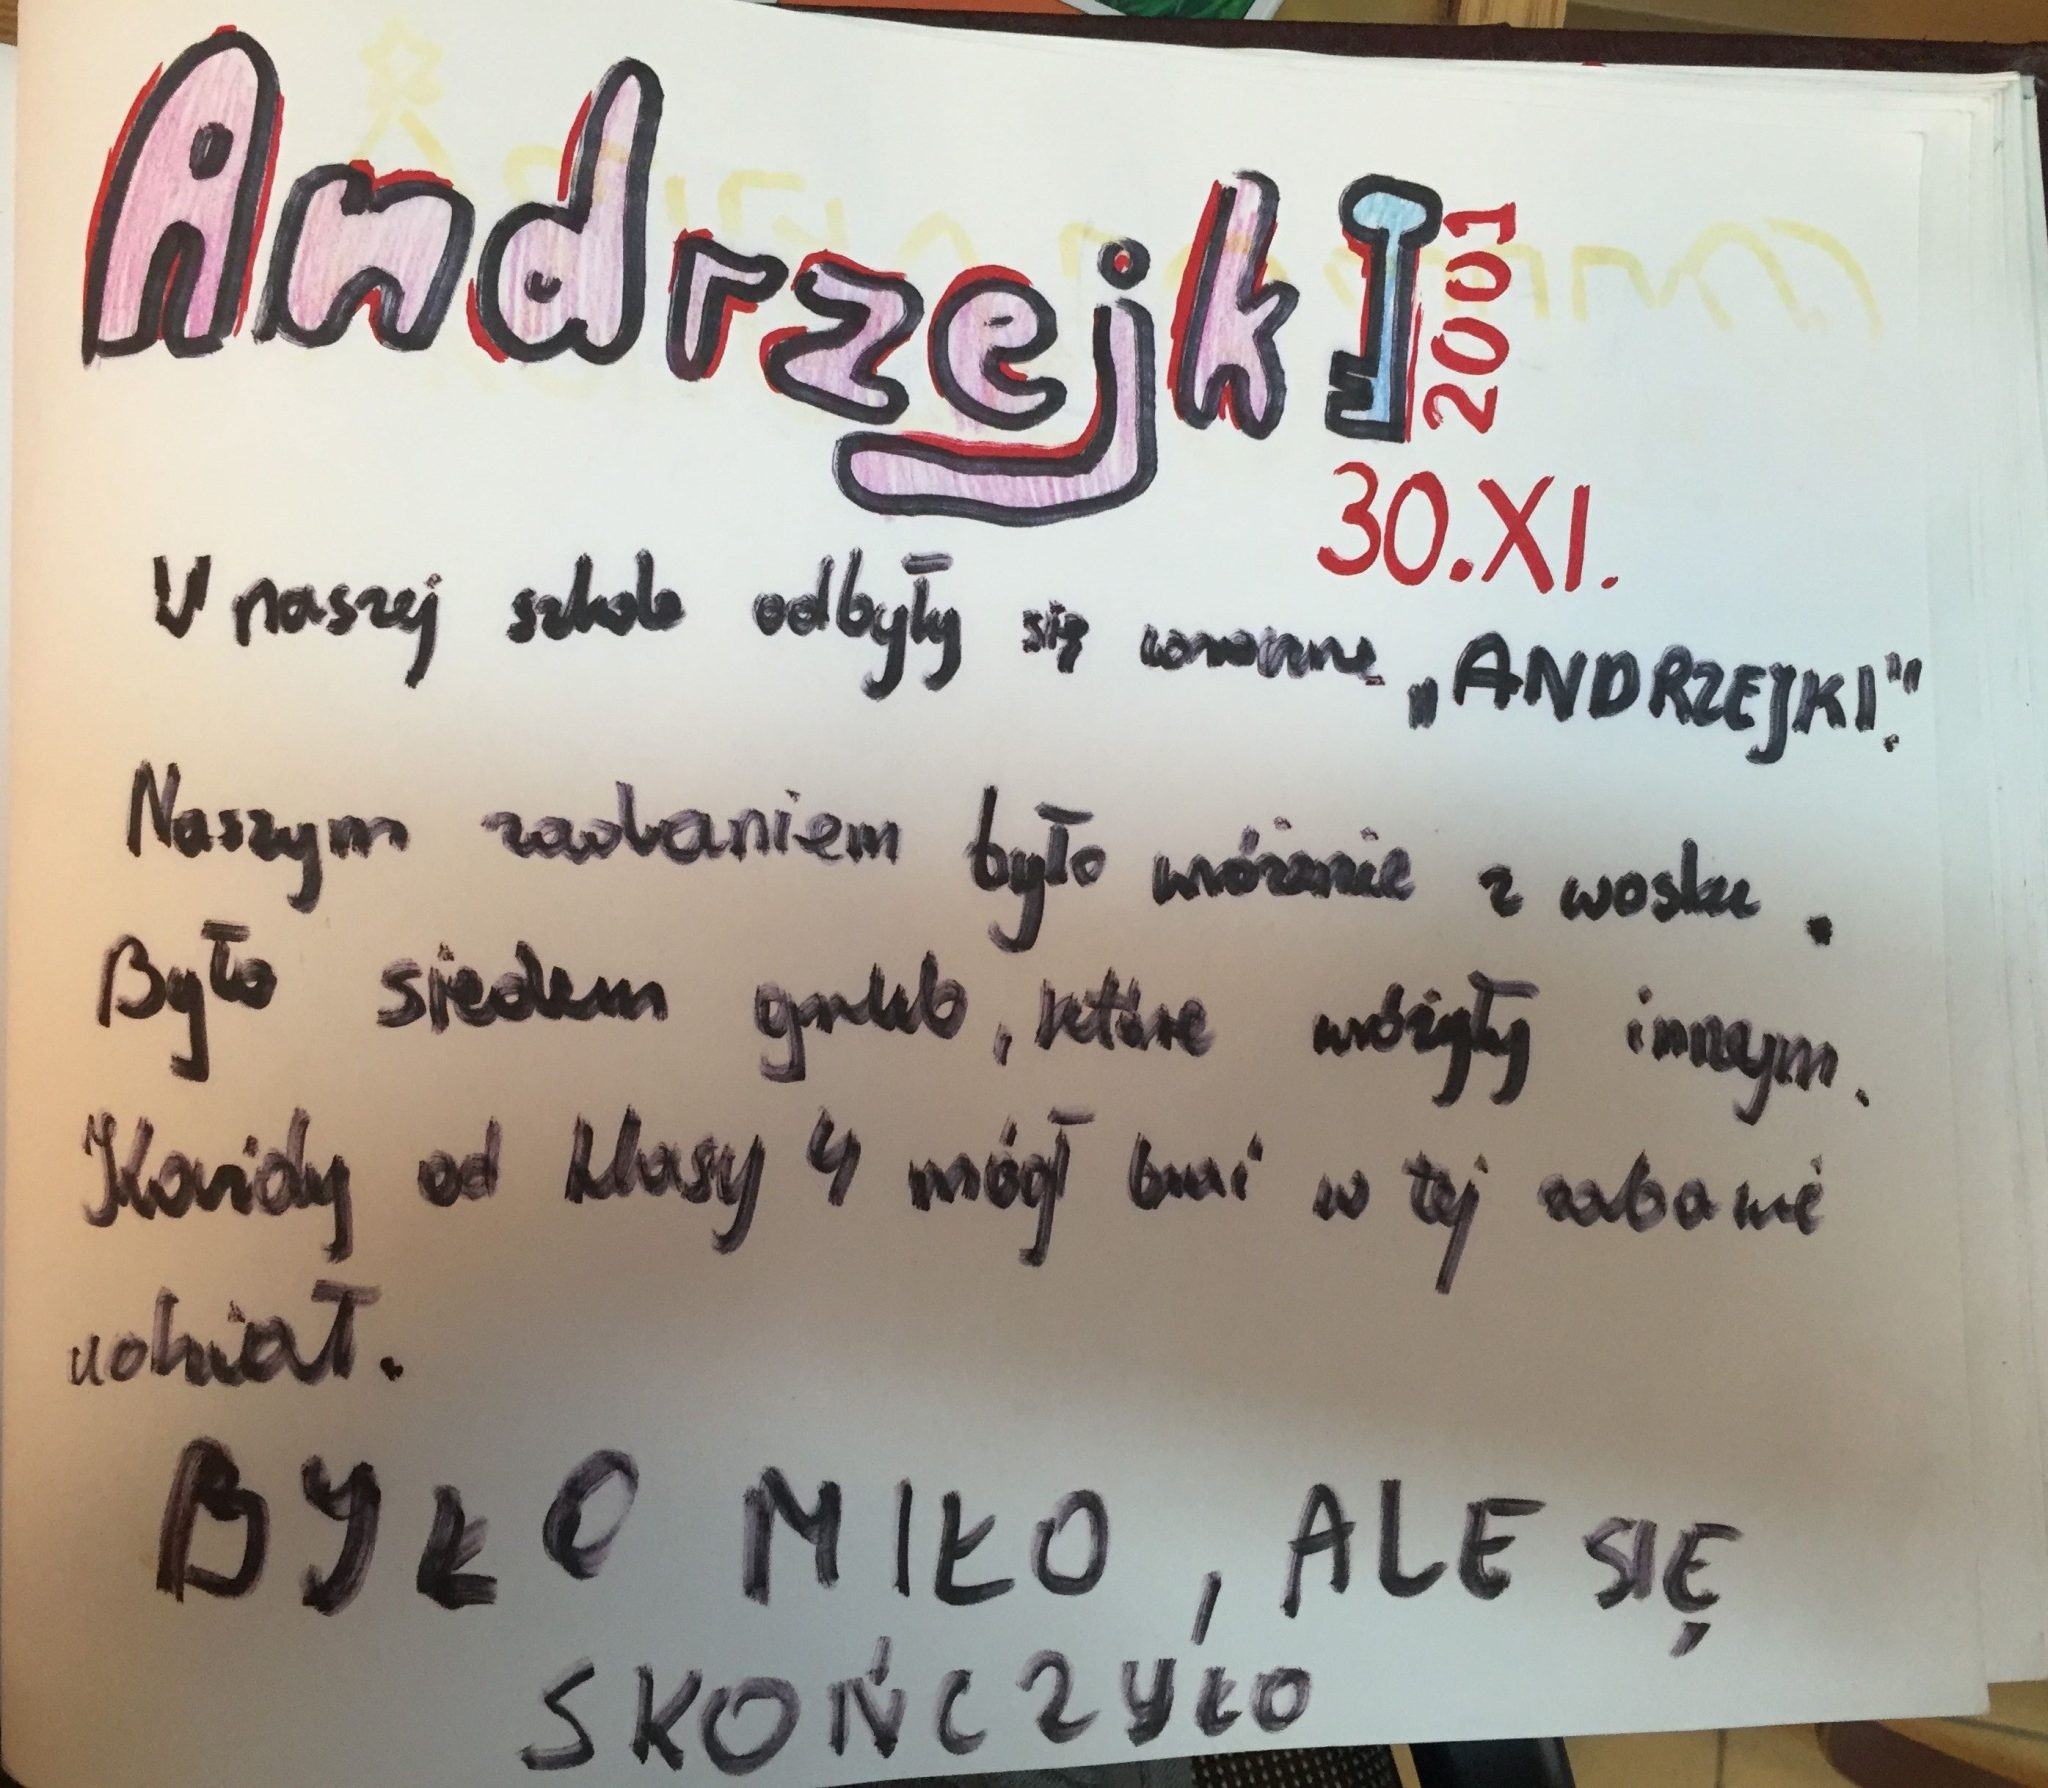 Andrzejki 2001
30.XI.
W naszej szkole odbyły się coroczne „ANDRZEJKI”.
Naszym zadaniem było wróżenie z wosku.
Było siedem grup, które wróżyły innym.
Każdy od klasy 4 mógł brać w tej zabawie
udział.
BYŁO MIŁO, ALE SIĘ
SKOŃCZYŁO